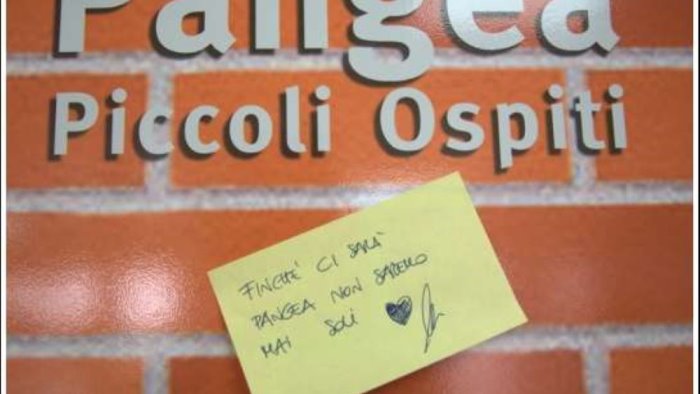 Pangea
Piccoli Ospiti
FINCHÉ CI SARÀ
PANGEA NON SAREMO
MAI SOLI